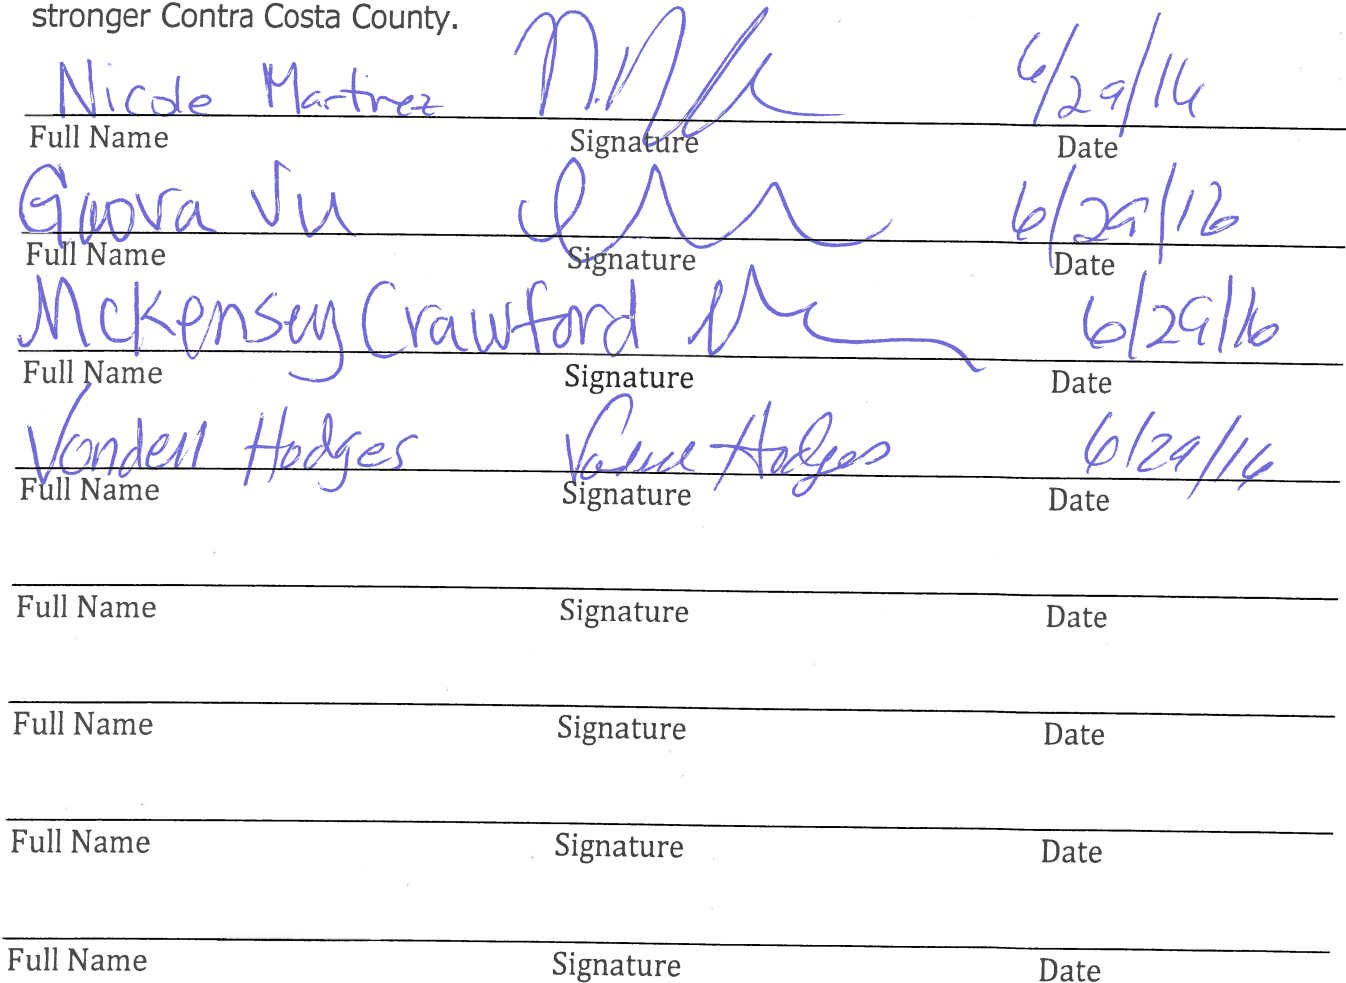 stronger Contra Costa County.
Nicole Martinez 6/29/16
Full Name Signature Date
Vu 6/29/16
Full Name Signature Date
Mckensey Crawford 6/29/16
Full Name Signature Date
Vondell Hodges Hodges 6/29/16
Full Name Signature Date
Full Name Signature Date
Full Name Signature Date
Full Name Signature Date
Full Name Signature Date